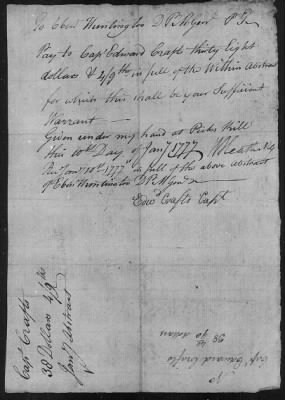 To Eben Huntington D P M Genl
Pay to Capt Edward Crafts thirty Eight
dollars & 4/9th in full of the Within Abstract
for which this shall be your Sufficient
Warrant —
Given under my hand at Peeks Kill
this 10th Day of Jany 1777 Heath
Jany 10th 1777 in full of the above Abstract
of Eben Huntington D P M Genl
Edwd Crafts Capt
Capt Crafts
38 Dollars 4/9
Jany Abstract
No
Capt Edward Crafts
38 dolars